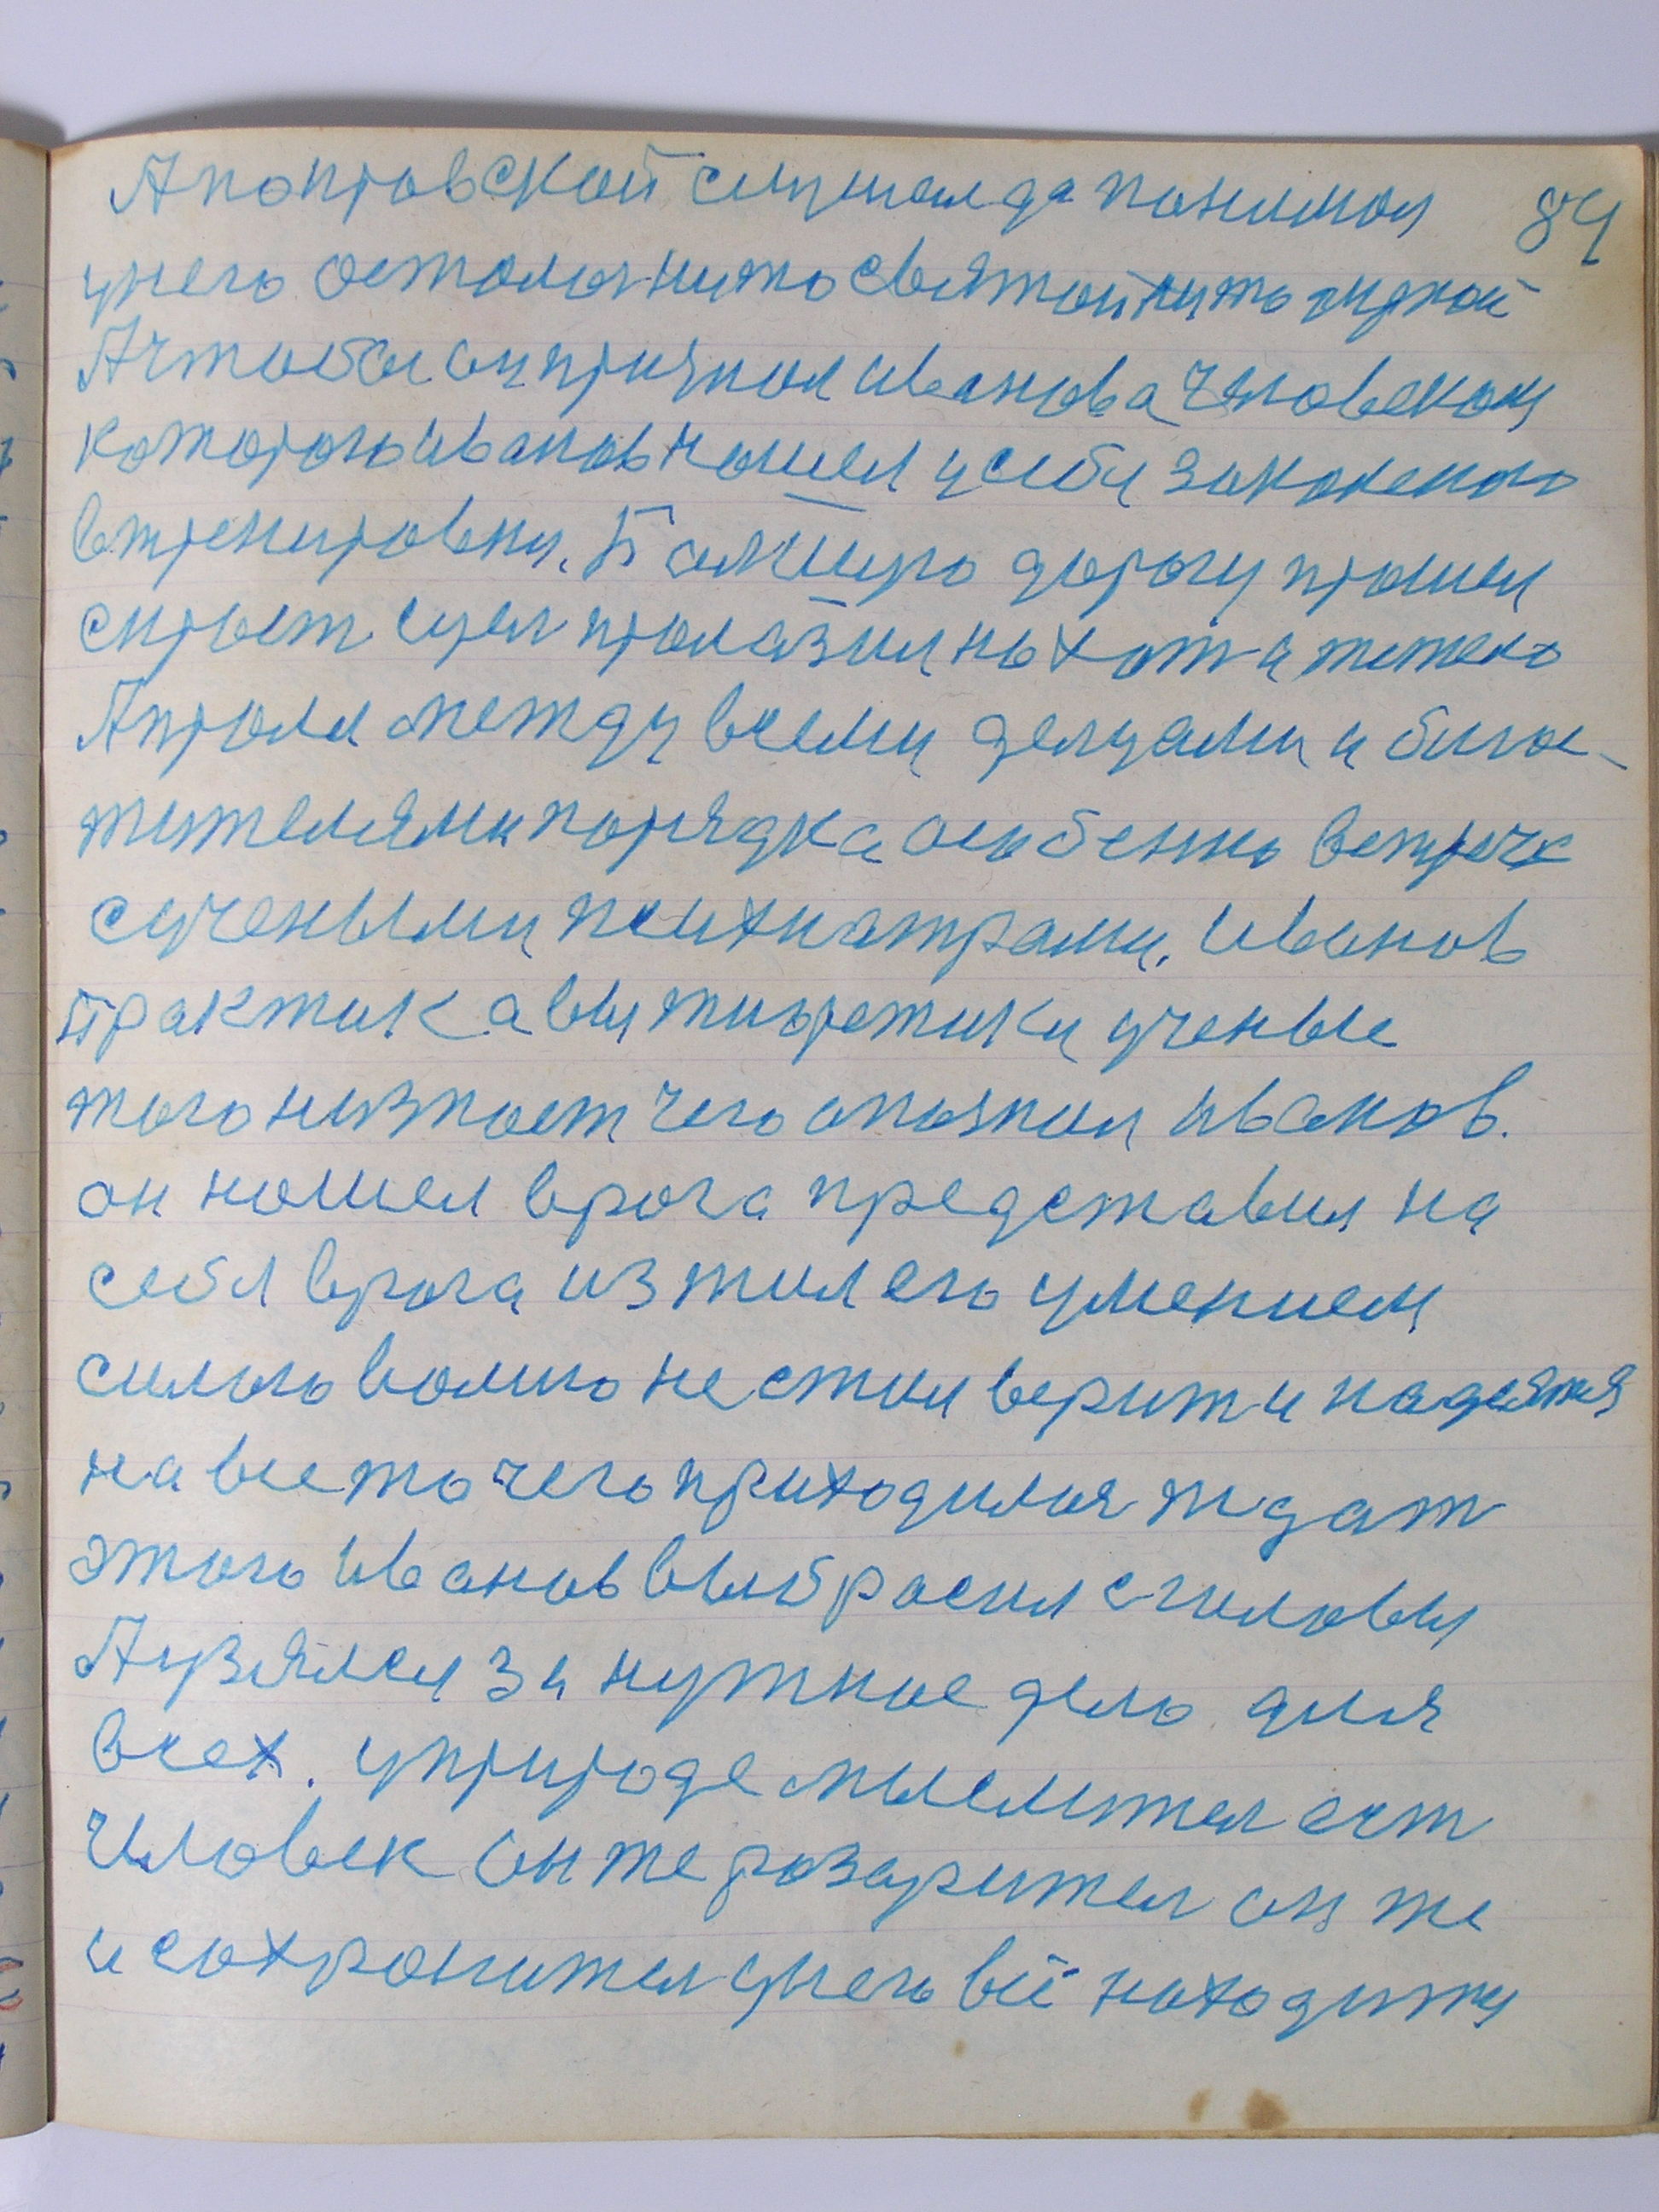 А покровской слушал да понимал 84
унего осталося нито святой нито чудной
А чтобы он признал иванова человеком
которого иванов нашел у себя закаленого
втренировки. Большую дорогу прошел
сирьет
А прошел между всеми дельцами и блюс-
тителями порядка особенно встреча
сучеными психиатрами. Иванов
практик а вы тиоретики ученые
того низнает чего опознал иванов.
он нашел врага представил на
себя врага изжил его умением
силого волию не стал верит и надеятся
на все то чего приходилося ждат
этого Иванов выбросил сголовы
А узялся за нужное дело для
всех. уприроде мыслител ест
человек он же розарител он же
и сохранител унего всё находится